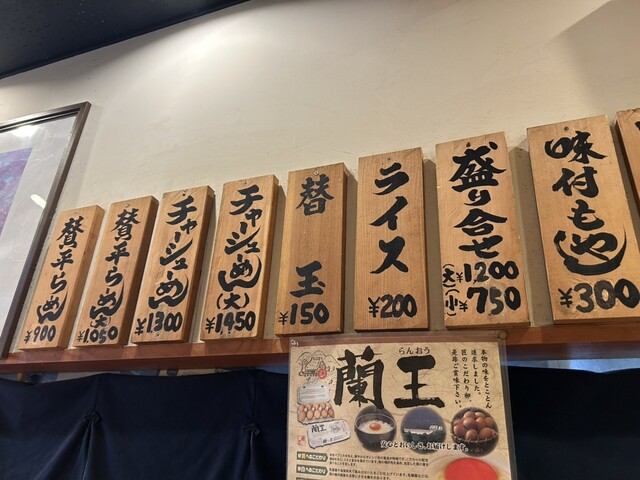 賛平らーめん
¥900
賛平らーめん
大
¥1050
チャーシューめん
¥1300
チャーシューめん
(大)
¥1,450
替玉
¥150
ライス
¥200
盛り合せ
(大)¥1,200
(小)¥750
味付もやし
¥300
らんおう
蘭王
本物の味をとことん
追求しました。
匠のこだわり卵、
是非ご賞味下さい。
蘭王
安心とおいしさ、お届けします。